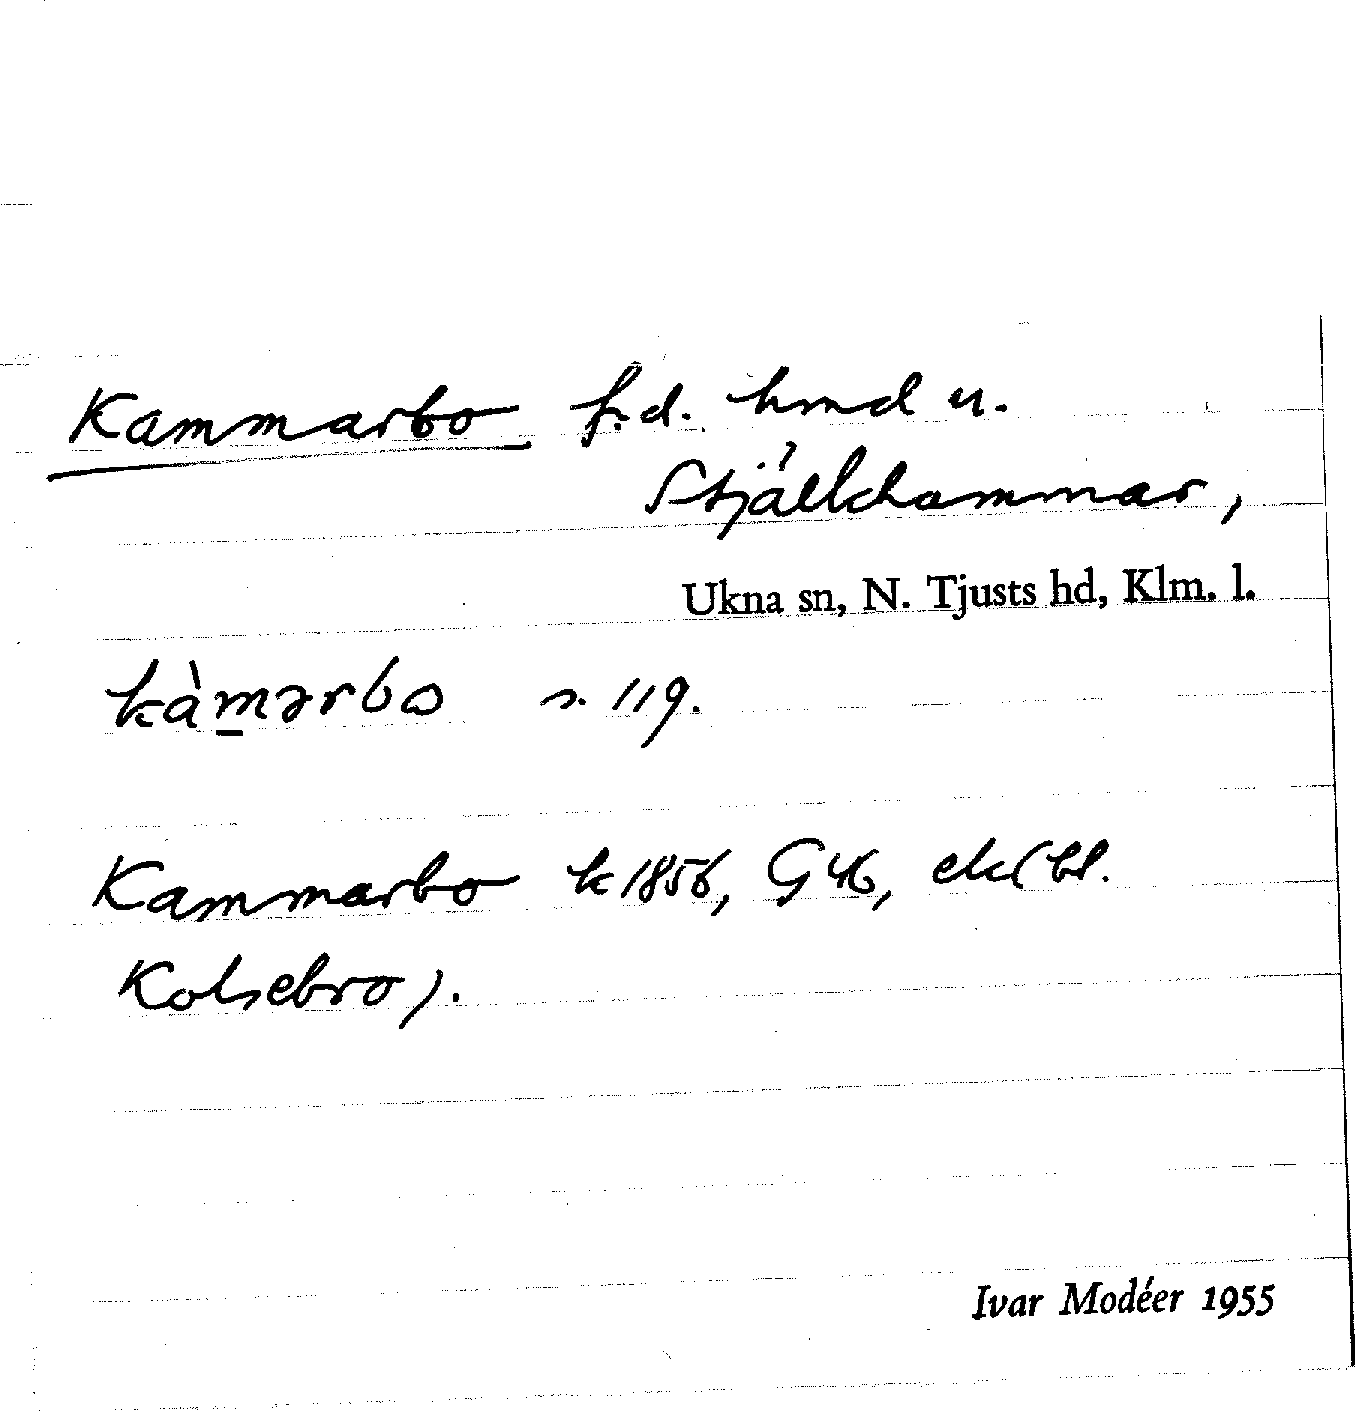 Kammarbo f.d. hmd u.
Stjälkhammar,
Ukna sn, N. Tjusts hd, Klm. l.
kàmərbo s. 119.
Kammarbo k 1856, G 46, ek (bl.
Kolsebro).
Ivar Modéer 1955